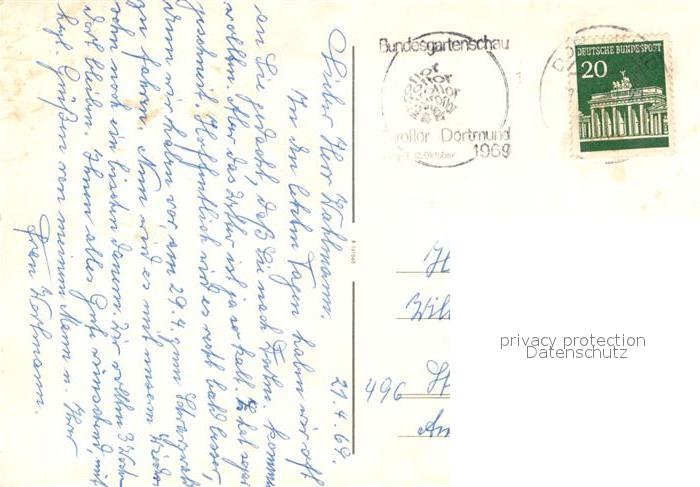 21.4.69.
Lieber Herr Wahlmann.
In den letzten Tagen haben wir oft
an Sie gedacht, daß Sie nach kommen
wollten. Aber das Wetter ist ja so kalt. Es hat sogar
geschneit. Hoffentlich wird es recht bald besser,
denn wir haben vor, am 29.4. zum Schwarzwald
zu fahren. Nun wird es mit unserm
wohl noch ein bischen dauern. Wir wollen 3 Wochen
dort bleiben. Ihnen alles Gute wünschend, mit
herzl. Grüßen von meinem Mann u. Ihrer
Frau Wortmann.
Bundesgartenschau
Euroflor Dortmund
Oktober 1969
DEUTSCHE BUNDESPOST
20
H
Wil
496 St
Am
privacy protection
Datenschutz